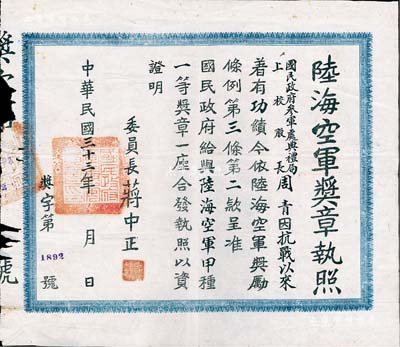 陸海空軍獎章執照
國民政府參軍處典禮局
上校股長周青因抗戰以來
著有功績今依陸海空軍獎勵
條例第三條第二款呈准
國民政府給與陸海空軍甲種
一等獎章一座合發執照以資
證明
委員長蔣中正
中華民國三十三年 月 日
獎字第 1892 號
獎字
號